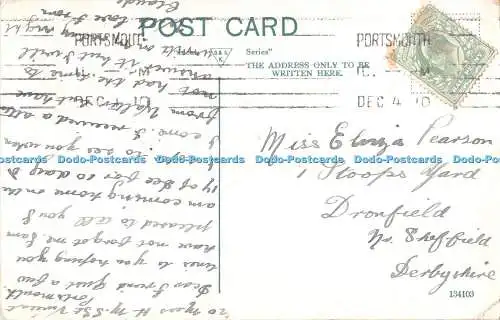 POST CARD
Series"
THE ADDRESS ONLY TO BE
WRITTEN HERE.
PORTSMOUTH
DEC 4 10
PORTSMOUTH
DEC
Miss Eliza Pearson
1 Stoops Yard
Dronfield
Nr Sheffield
Derbyshire
134103
20 Mess H.M.S St Vincent
Portsmouth.
Dear Friend Just a few
lines to you hoping you
have not forgot me. I am
pleased to tell you I
am coming home on the
14 of Dec for 10 days
to see you when
I come. I received a
from Walter but have
not had the time to
answer it but I will
my night
love from
Claude
Dodo-Postcards Dodo-Postcards Dodo-Postcards Dodo-Postcards Dodo-Postcards